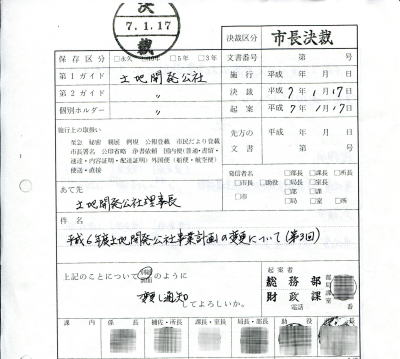 決
7.1.17
裁
決裁区分 市長決裁
保存区分 □永久 □10年 □5年 □3年
文書番号 第 号
第1ガイド 土地開発公社
施行 平成 年 月 日
第2ガイド 〃
決裁 平成 7年 1月17日
個別ホルダー 〃
起案 平成 7年 1月17日
施行上の取扱い
先方の文書 平成 年 月 日
第 号
至急 秘密 親展 例規 公報登載 市民だより登載
市長署名 公印省略 浄書依頼 国内便(普通・書留・
速達・内容証明・配達証明) 外国便(船便・航空便)
使送・直接
発信者名
□市長 □助役 □部長 □局長 □課長 □室長 □所長
あて先
土地開発公社理事長
件名
平成6年度土地開発公社事業計画の変更について(第3回)
上記のことについて 別紙 のように
してよろしいか。
起案者
総務部
財政課
電話 番
課内 係長 補佐・所長 課長・室長 局長・部長 助役 市長